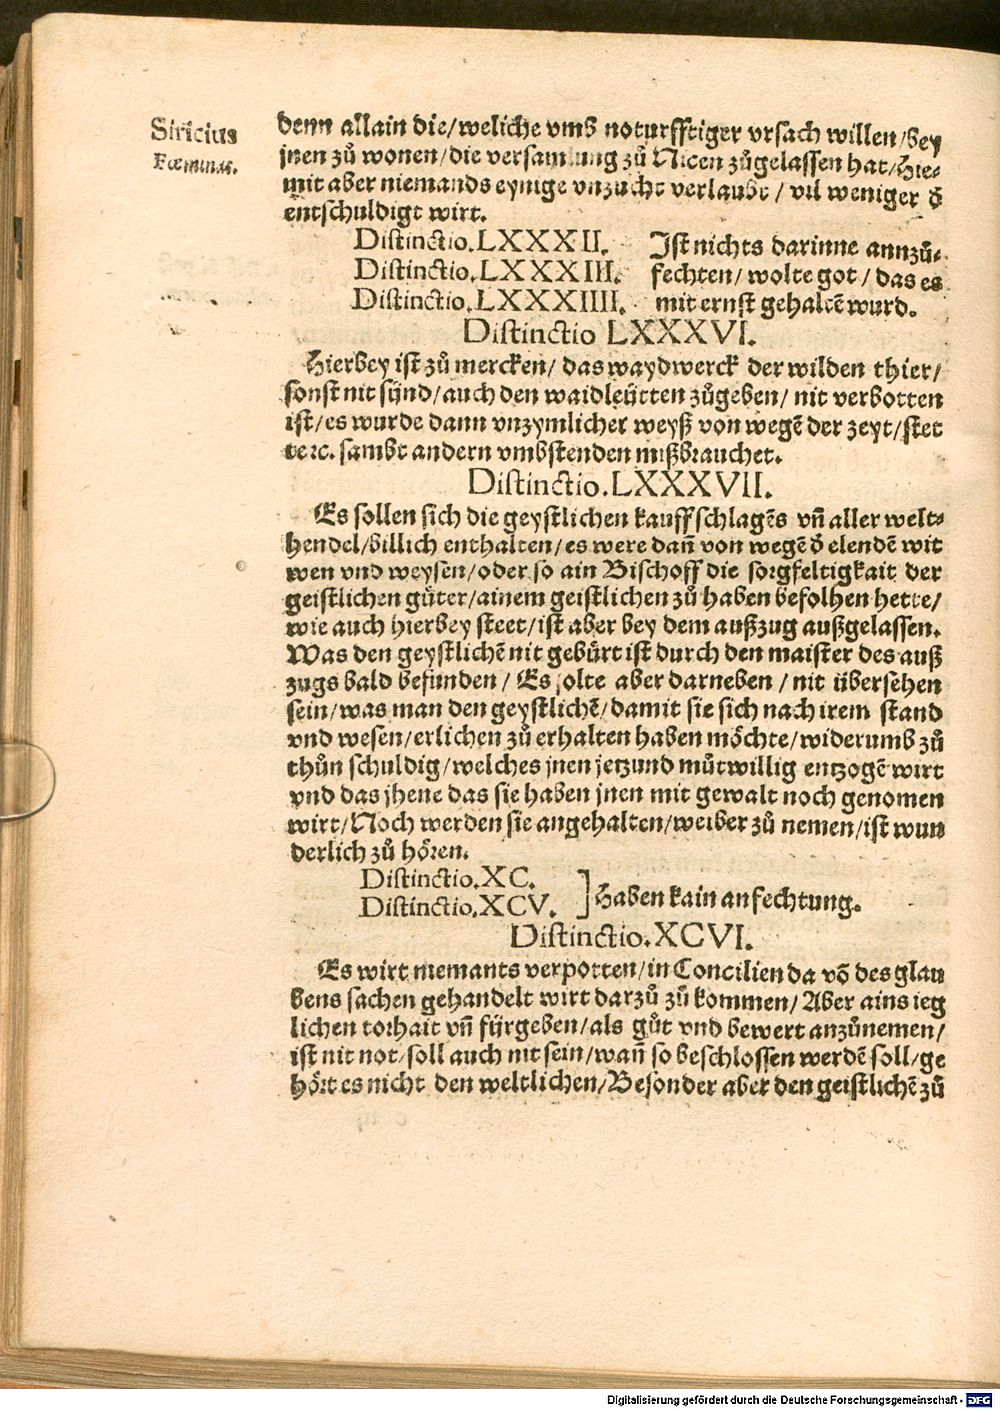 Siricius
Fœminas.
denn allain die/weliche vmb noturfftiger vrsach willen/bey
jnen zů wonen/die versamlung zů Nicen zůgelassen hat/Hie-
mit aber niemands eynige vnzucht verlaubt / vil weniger d̄
entschuldigt wirt.
Distinctio.LXXXII. Ist nichts darinne annzů-
Distinctio.LXXXIII. fechten/ wolte got / das es
Distinctio.LXXXIIII. mit ernst gehaltē wurd.
Distinctio LXXXVI.
Hierbey ist zů mercken/ das waydwerck der wilden thier/
sonst nit sünd/auch den waidleütten zůgeben/ nit verbotten
ist/es wurde dann vnzymlicher weyß von wegē der zeyt/stet
te ꝛc. sambt andern vmbstenden mißbrauchet.
Distinctio.LXXXVII.
Es sollen sich die geystlichen kauffschlagēs vn̄ aller welt-
hendel/billich enthalten/es were dan̄ von wegē d̄ elendē wit
wen vnd weysen/oder so ain Bischoff die sorgfeltigkait der
geistlichen gůter/ainem geistlichen zů haben befolhen hette/
wie auch hierbey steet/ist aber bey dem außzug außgelassen.
Was den geystlichē nit gebürt ist durch den maister des auß
zugs bald befunden / Es solte aber darneben / nit übersehen
sein/was man den geystlichē/damit sie sich nach irem stand
vnd wesen/erlichen zů erhalten haben möchte/widerumb zů
thůn schuldig/welches jnen jetzund můtwillig entzogē wirt
vnd das jhene das sie haben jnen mit gewalt noch genomen
wirt/Noch werden sie angehalten/weiber zů nemen/ist wun
derlich zů hören.
Distinctio.XC.
Distinctio.XCV. ] Haben kain anfechtung.
Distinctio.XCVI.
Es wirt niemants verpotten/in Concilien da vō des glau
bens sachen gehandelt wirt darzů zů kommen/ Aber ains ieg
lichen torhait vn̄ fürgeben/als gůt vnd bewert anzůnemen/
ist nit not/soll auch nit sein/wan̄ so beschlossen werdē soll/ge
hört es nicht den weltlichen/Besonder aber den geistlichē zů
Digitalisierung gefördert durch die Deutsche Forschungsgemeinschaft - DFG